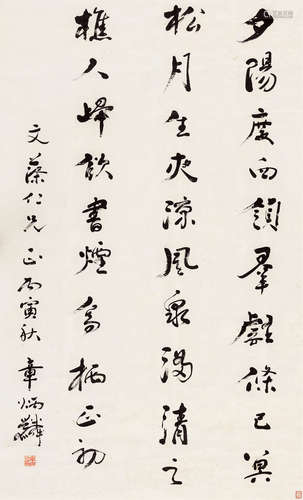 夕陽度西領羣壑倏已冥
松月生夜涼風泉滿清
樵人歸欲盡煙鳥栖定初
文仁兄正丙寅秋章炳麟